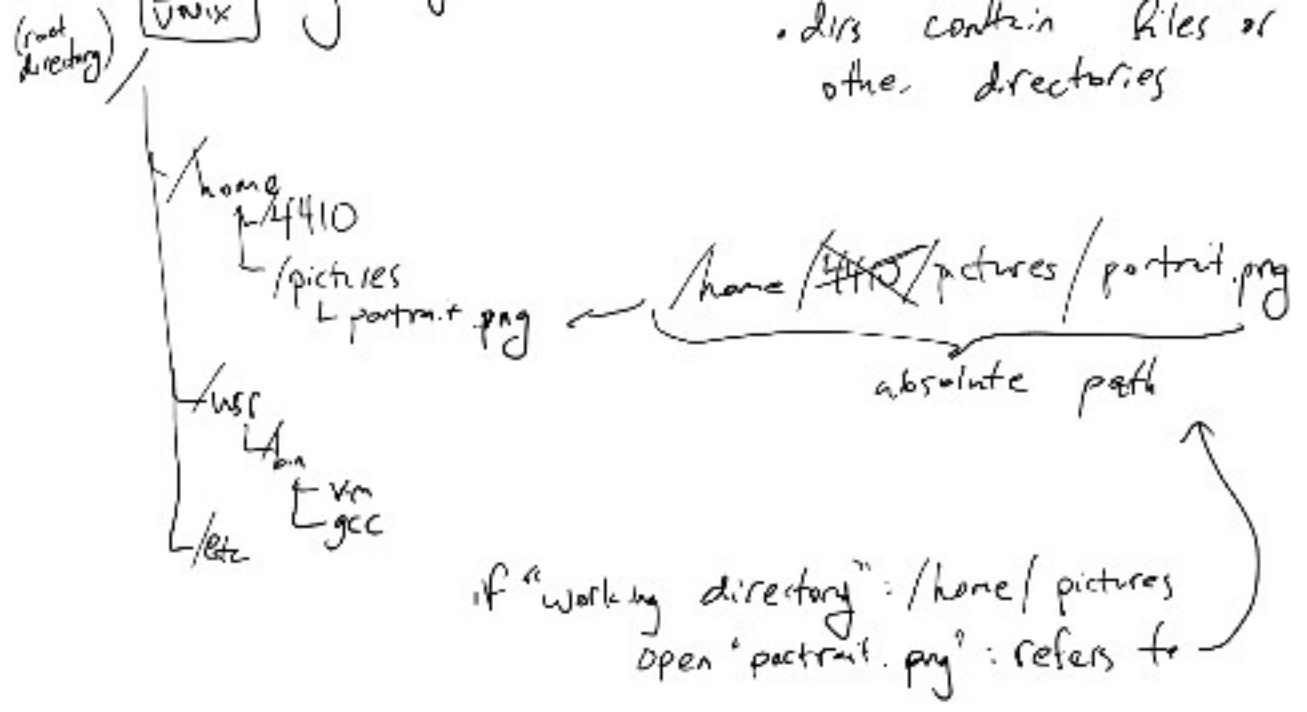 (root directory)
UNIX
/
• dirs contain files or
other directories
/home
/4410
/pictures
portrait.png
/home/4410/pictures/portrait.png
absolute path
/usr
/bin
vim
gcc
/etc
if "working directory": /home/pictures
open "portrait.png": refers to